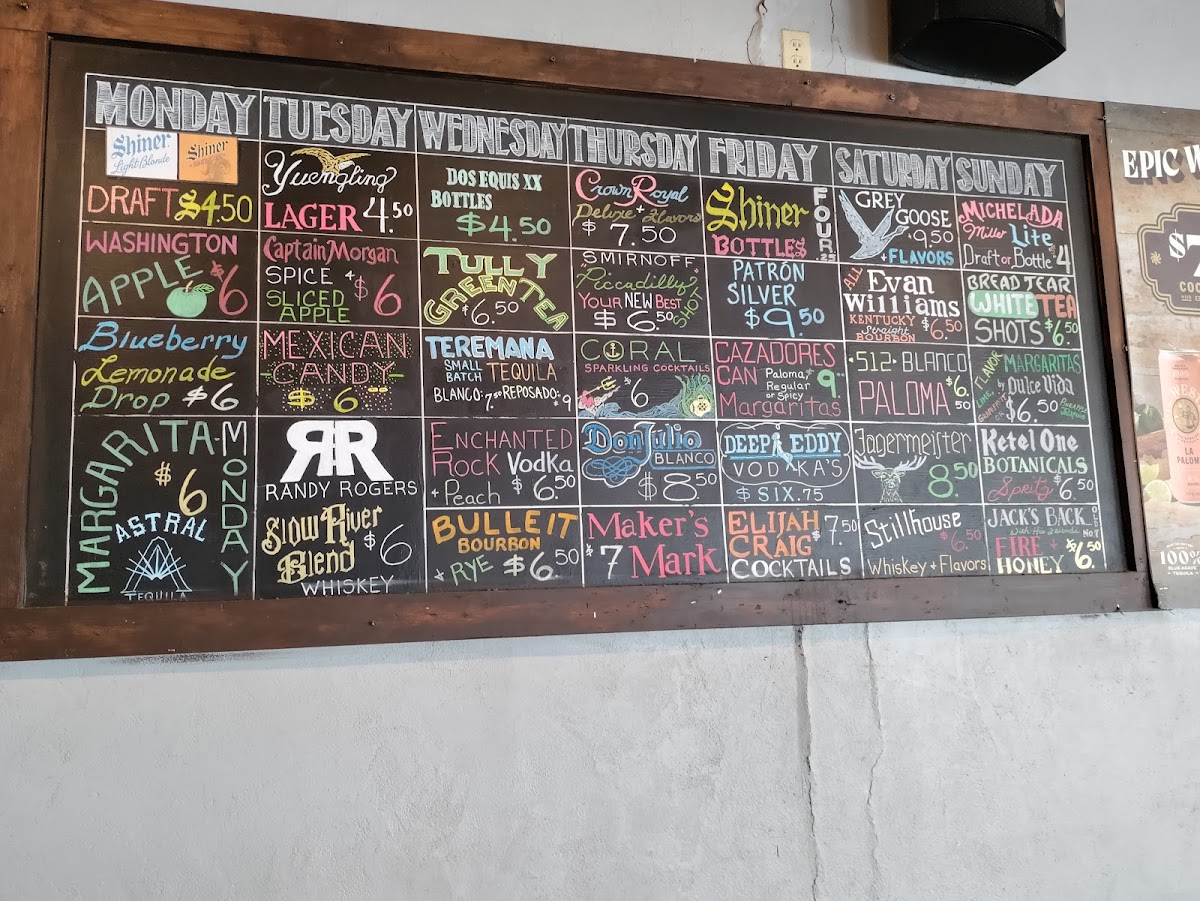 MONDAY
Shiner
Light Blonde
Shiner
DRAFT $4.50
WASHINGTON
APPLE $6
Blueberry
Lemonade
Drop $6
MARGARITA-
MONDAY
$6
ASTRAL
TEQUILA
TUESDAY
Yuengling
LAGER 4.50
Captain Morgan
SPICE $6
SLICED
APPLE
MEXICAN
CANDY
$6
RR
RANDY ROGERS
Slow River
Blend $6
WHISKEY
WEDNESDAY
DOS EQUIS XX
BOTTLES
$4.50
TULLY
GREEN TEA
$6.50
TEREMANA
SMALL
BATCH TEQUILA
BLANCO: 7.50 REPOSADO: $9
ENCHANTED
ROCK Vodka
+ Peach $6.50
BULLEIT
BOURBON
+ RYE $6.50
THURSDAY
Crown Royal
Deluxe + Flavors
$7.50
SMIRNOFF
Piccadilly?
YOUR NEW BEST
SHOT
$6.50
CORAL
SPARKLING COCKTAILS
$6
Don Julio
BLANCO
$8.50
Maker's
$7 Mark
FRIDAY
Shiner
BOTTLES
FOUR.25
PATRÓN
SILVER
$9.50
CAZADORES
CAN Paloma,
Regular
or Spicy
9
Margaritas
DEEP EDDY
VODKA'S
$ SIX.75
ELIJAH $7.50
CRAIG
COCKTAILS
SATURDAY
GREY
GOOSE
9.50
+ FLAVORS
ALL
Evan
Williams
KENTUCKY
Straight
BOURBON
$6.50
·512· BLANCO
PALOMA $6.50
Jagermeister
8.50
Stillhouse
$6.50
Whiskey + Flavors
SUNDAY
MICHELADA
Miller Lite
Draft or Bottle $4
BREAD TEAR
WHITE TEA
SHOTS $6.50
FLAVOR
LIME,
MARGARITAS
by Dulce Vida
$6.50
Ketel One
BOTANICALS
Spritz $6.50
JACK'S BACK
FIRE +
HONEY $6.50
EPIC
$7
COC
LA
PALOM
100%
TEQUILA